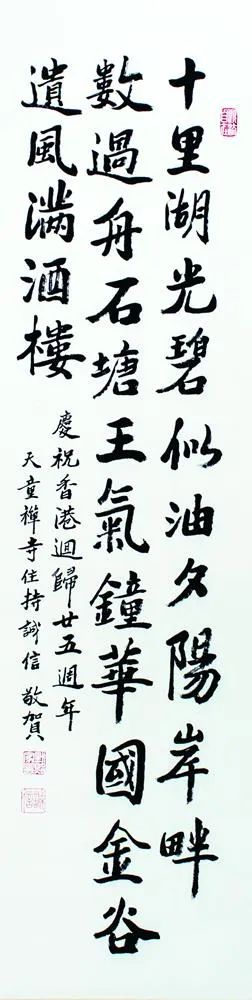 十里湖光碧似油夕陽岸畔
數過舟石塘王氣鐘華國金谷
遺風滿酒樓
慶祝香港迴歸廿五週年
天童禅寺住持誠信敬賀